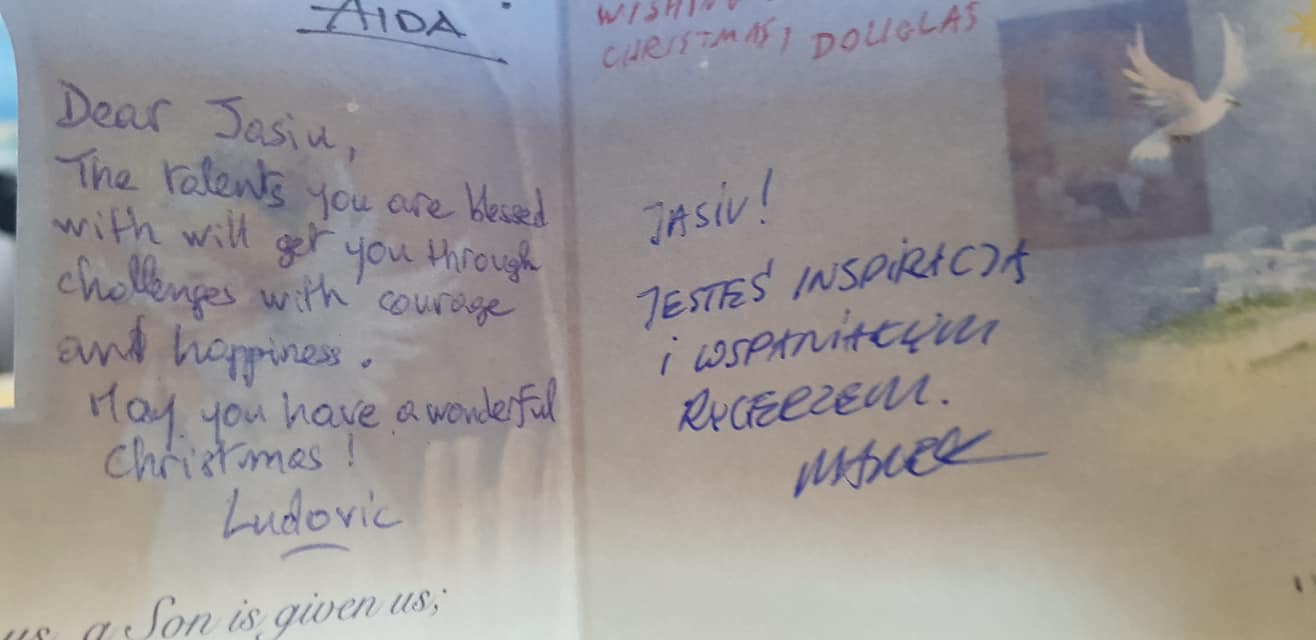 AIDA
Dear Jasiu,
The talents you are blessed
with will get you through
challenges with courage
and happiness.
May you have a wonderful
Christmas!
Ludovic
us, a Son is given us;
CHRISTMAS, DOUGLAS
JASIU!
JESTEŚ INSPIRACJĄ
i WSPANIAŁYM
RYCERZEM.